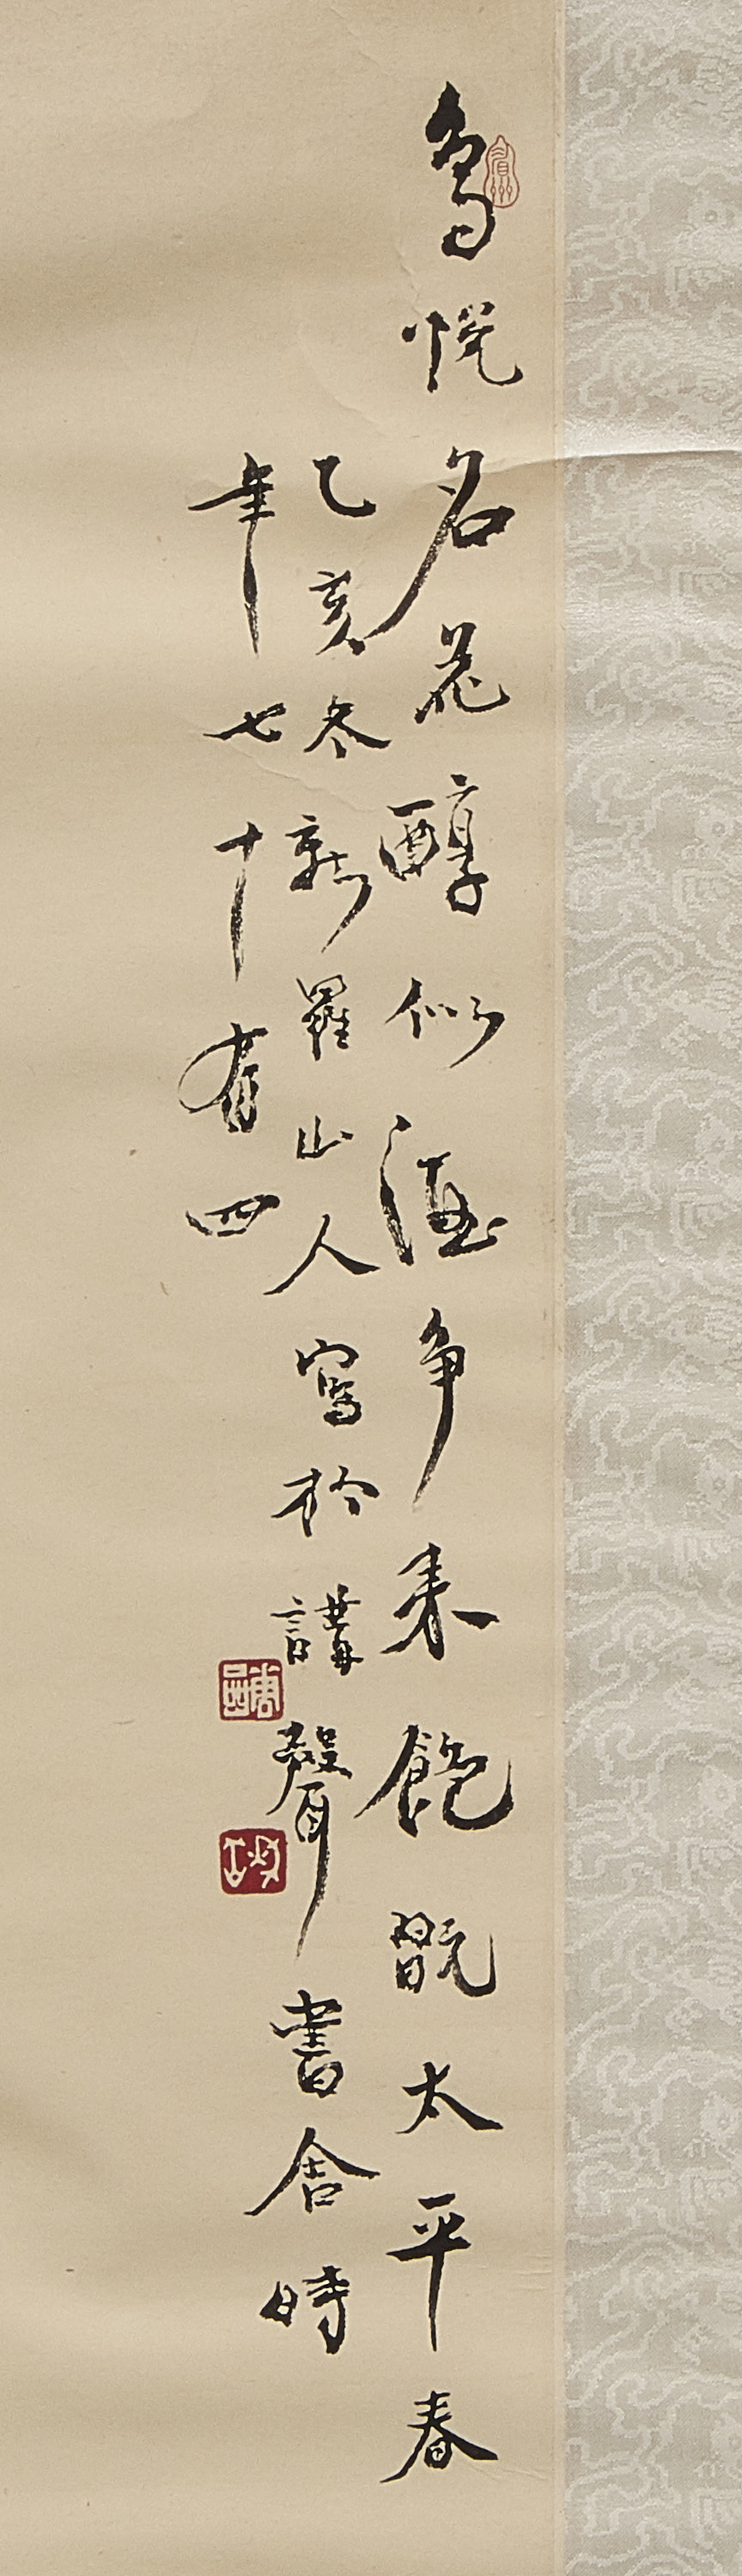 鳥悦名花醇似酒争来飽翫太平春
乙亥冬新羅山人寫於講聲書舍時
年七十有四